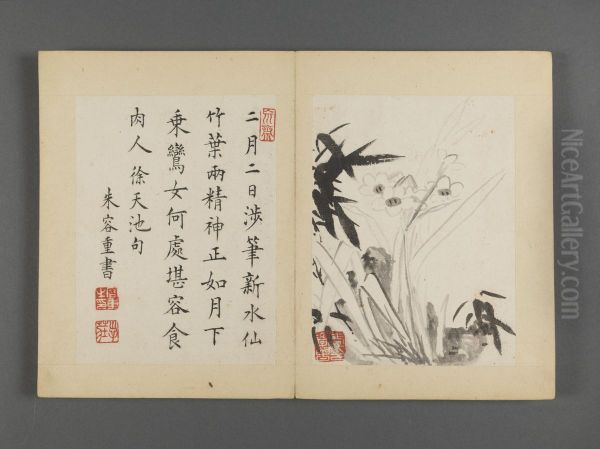 二月二日涉筆新水仙
竹葉兩精神正如月下
乘鸞女何處堪容食
肉人徐天池句
朱容重書
NiceArtGallery.com